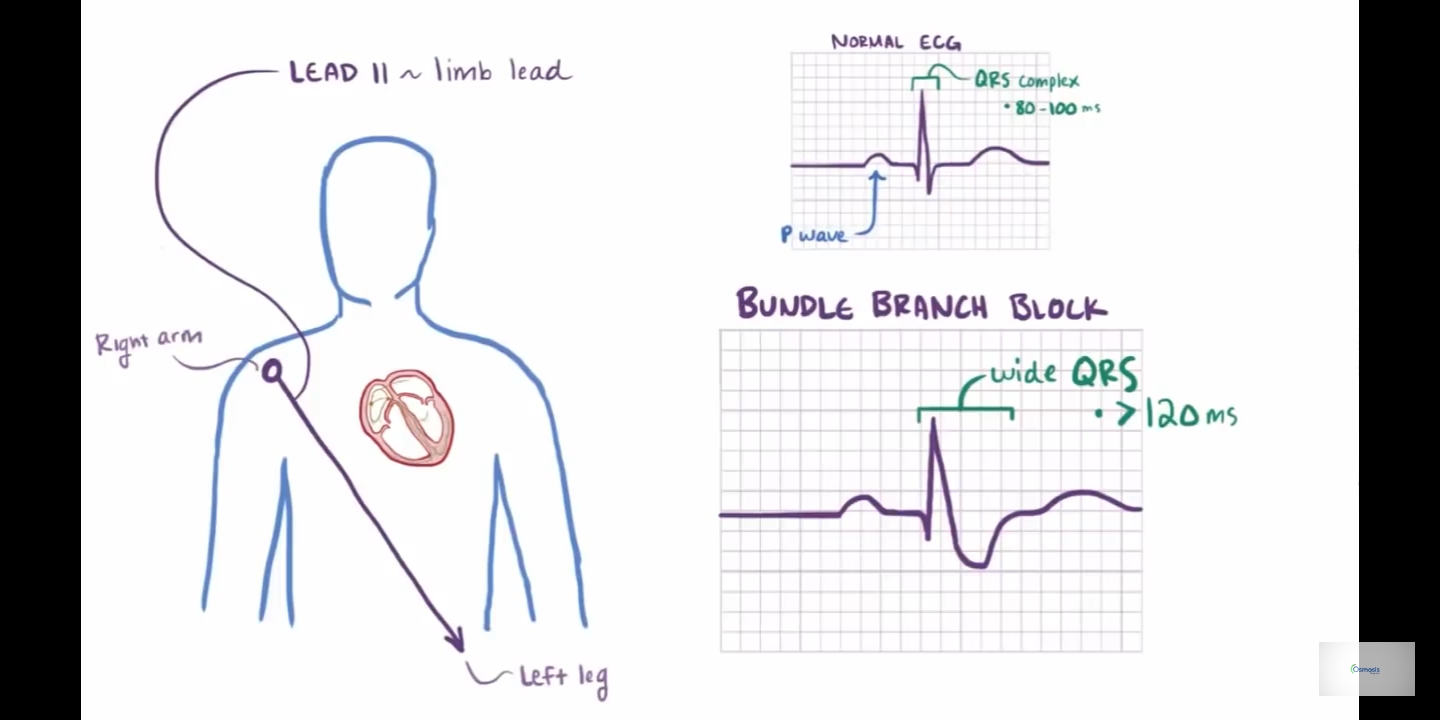 LEAD II ~ limb lead
Right arm
Left leg
NORMAL ECG
QRS complex
• 80-100 ms
P wave
BUNDLE BRANCH BLOCK
wide QRS
• >120 ms
Osmosis